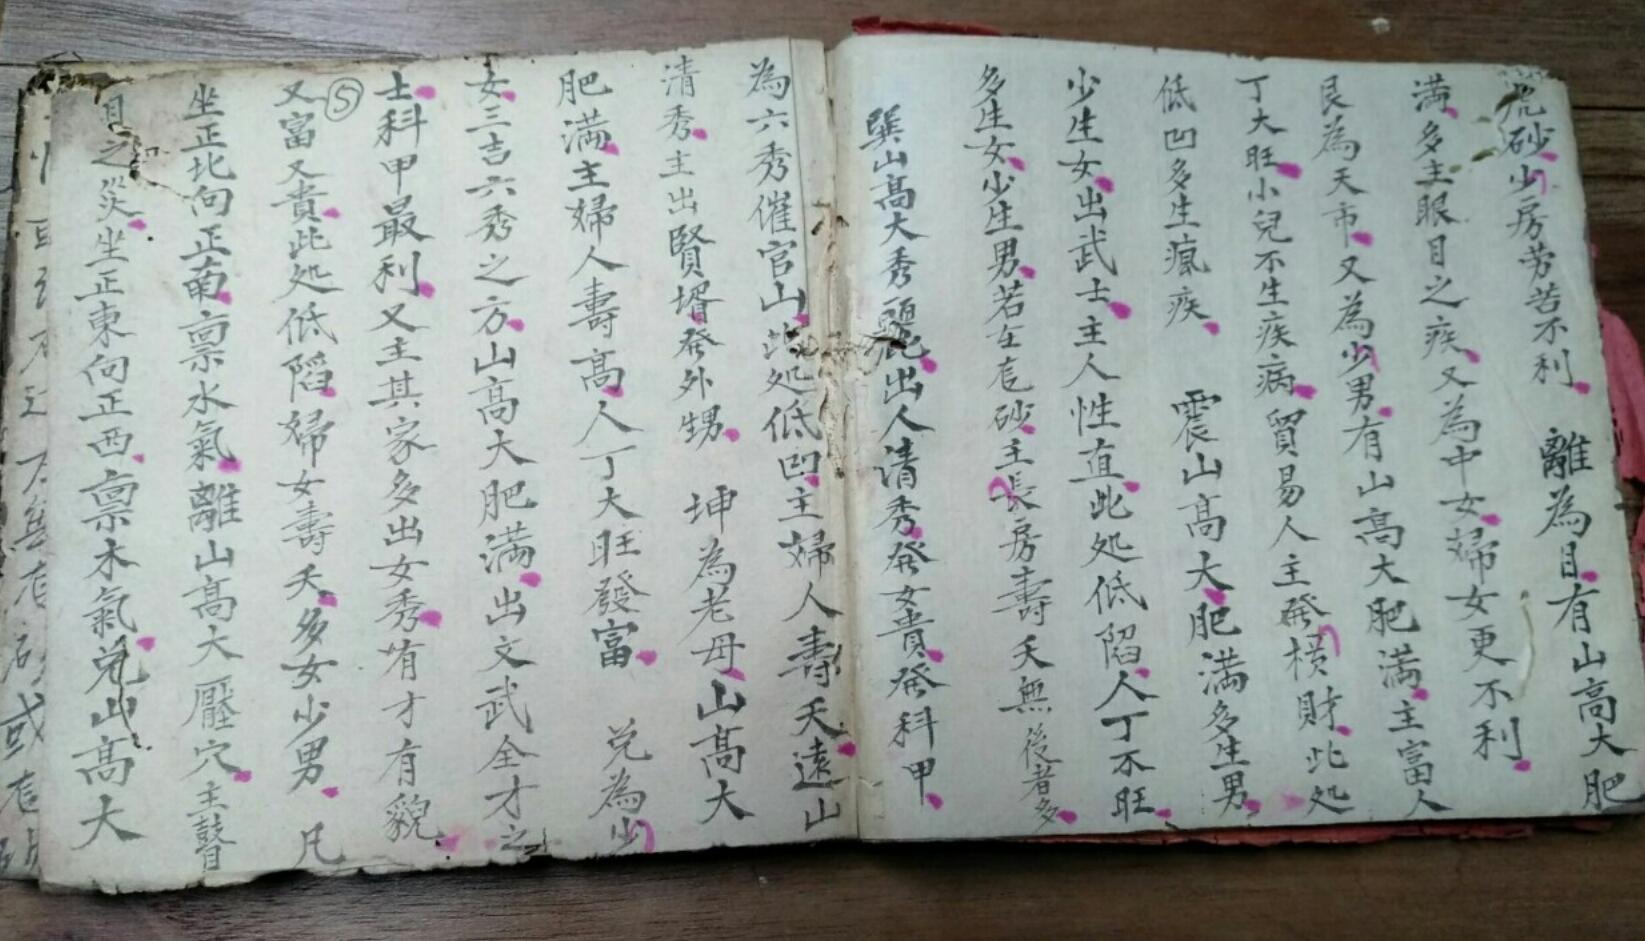 砂少房劳苦不利　離為目有山高大肥
满多主眼目之疾又為中女婦女更不利
艮為天市又為少男有山高大肥满主富人
丁大旺小兒不生疾病貿易人主發横財此処
低凹多生瘋疾　震山高大肥满多生男
少生女出武士主人性直此処低陷人丁不旺
多生女少生男若在砂主長房壽夭無後者多
巽山高大秀麗出人清秀發女貴發科甲
為六秀催官山此処低凹主婦人壽夭遠山
清秀主出賢壻發外甥　坤為老母山高大
肥满主婦人壽高人丁大旺發富　兌為少
女三吉六秀之方山高大肥满出文武全才之
士科甲最利又主其家多出女秀有才有貌
又富又貴此処低陷婦女壽夭多女少男　凡
⑤
坐正北向正南禀水氣離山高大壓穴主瞽
目之災坐正東向正西禀木氣兌山高大